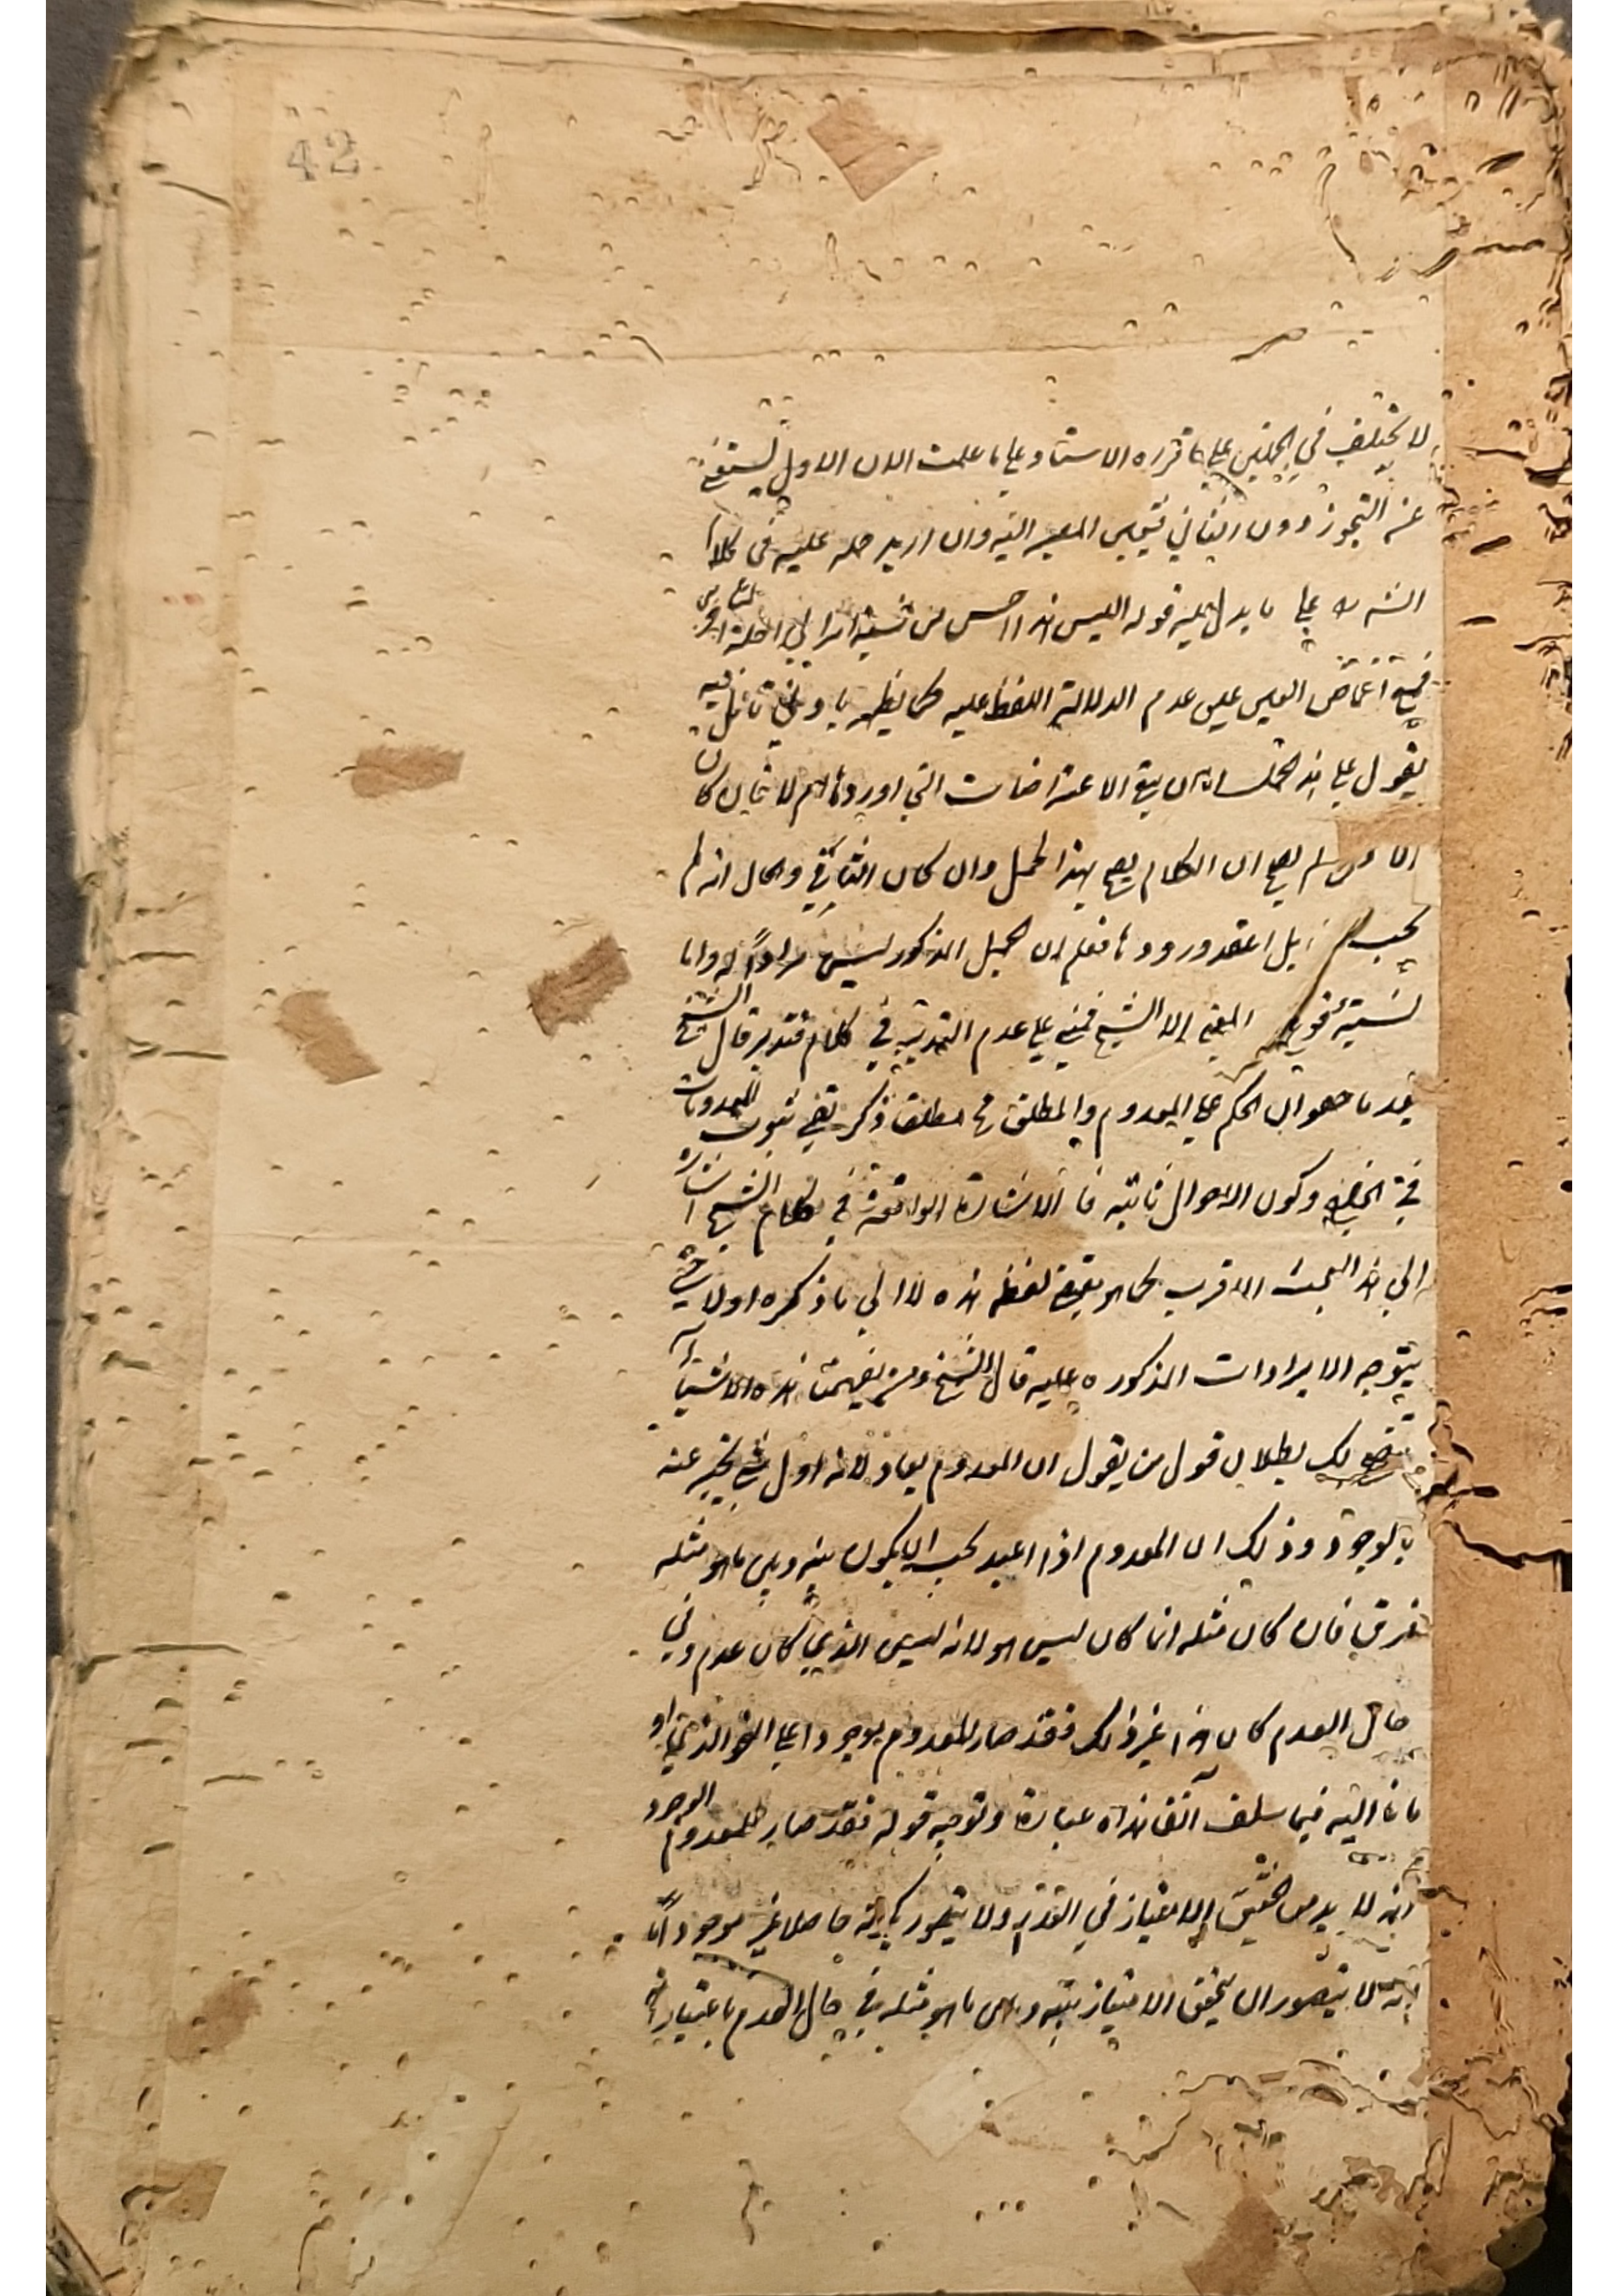 42
لا يختلف في الحملين على ما قرره الاستاد وعلى ما علمت الان الاول يستغنى
عن التجوز دون الثاني فتعين المصير اليه وان اريد حمله عليه في كلام
الش على ما يدل عليه قوله اليس هذا احسن من نسبة
اغماض العين عن عدم الدلالة اللفظ عليه كما يظهر بادنى تأمل فيه
يقول على هذ الاعتراضات التي اوردها لا كان
ان الكلام يصح بهذا الحمل وان كان والحال انه لم
يجب بل اعتقد ورودها فعلم ان الحمل المذكور ليس مرادا له واما
نسبة المعنى الى الشيخ فمبني على عدم التدبر في كلامه فتدبر قال الشيخ
بعد ما حقق ان الحكم على المعدوم المطلق مطلقا ذكر نفي ثبوت المعدومات
في الخارج وكون الاحوال ثابتة فالاشارة الواقعة في كلام الشيخ اشارة
الى هذا البحث الاقرب كما هو مقتضى لفظ هذه لا الى ما ذكره اولا حتى
يتوجه الايرادات المذكورة عليه قال الشيخ ومن تفهمنا هذه الاشياء
يتضح لك بطلان قول من يقول ان المعدوم يعاد لانه اول شئ يخبر عنه
بالوجود وذلك ان المعدوم اذا اعيد يجب ان يكون بينه وبين ما هو مثله
فرق فان كان مثله انما كان ليس هو لانه ليس الذي كان عدم وفي
حال العدم كان هذا غير ذلك فقد صار المعدوم موجودا على النحو الذي او
مأنا اليه فيما سلف آنفا هذاه عبارة وتوجيه قوله فقد صار المعدوم الموجود
انه لا بد من تحقق الامتياز في العدم ولا يتصور كونه حاصلا غير موجود اما
انه لا يتصور ان يتحقق الامتياز بينه وبين ما هو مثله في حال العدم باعتبار انه